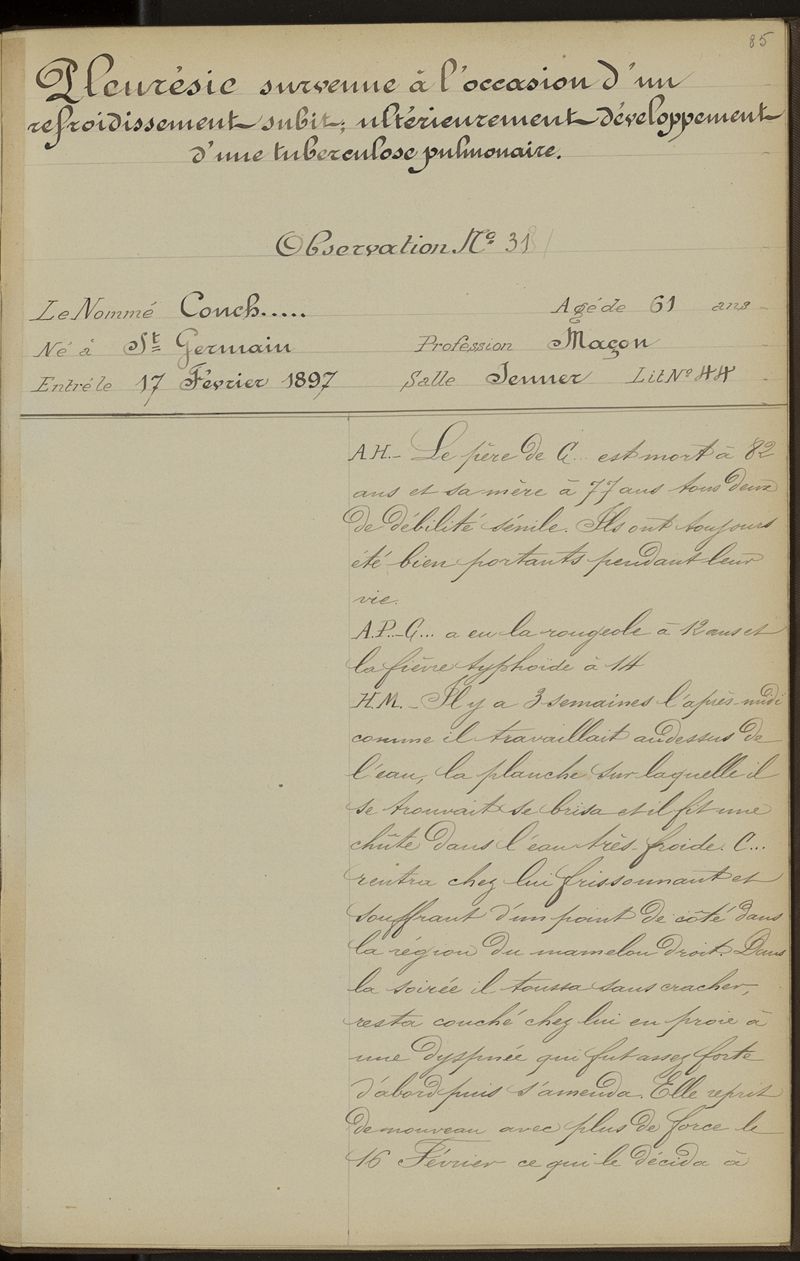 85
Pleurésie survenue à l'occasion d'un
refroidissement subit; ultérieurement développement
d'une tuberculose pulmonaire.
Observation No 31
Le Nommé Couch..... Agé de 61 ans
Né à St Germain Profession Maçon
Entré le 17 Février 1897 Salle Jenner Lit No 44
A.H.- Le père de C... est mort à 82
ans et sa mère à 77 ans tous deux
de débilité sénile. Ils ont toujours
été bien portants pendant leur
vie.
A.P.- C... a eu la rougeole à 12 ans et
la fièvre typhoïde à 14
H.M.- Il y a 3 semaines l'après-midi
comme il travaillait au dessus de
l'eau, la planche sur laquelle il
se trouvait se brisa et il fit une
chûte dans l'eau très-froide. C...
rentra chez lui frissonnant et
souffrant d'un point de côté dans
la région du mamelon droit. Dans
la soirée il toussa sans cracher,
resta couché chez lui en proie à
une dyspnée qui fut assez forte
d'abord puis s'amenda. Elle reprit
de nouveau avec plus de force le
16 Février ce qui le décida à